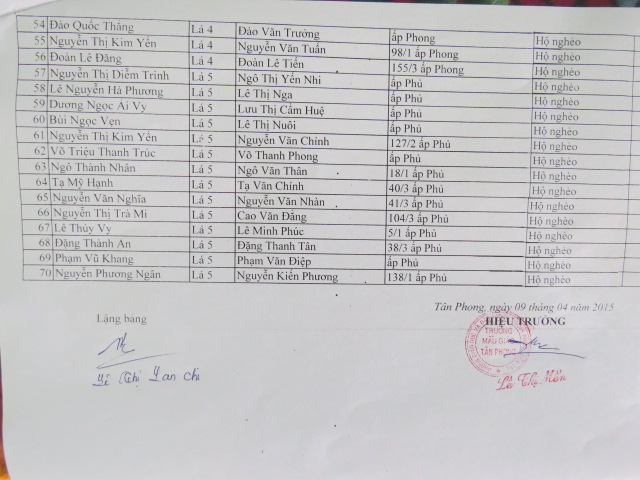 54 Đào Quốc Thắng Lá 4 Đào Văn Trường ấp Phong Hộ nghèo
55 Nguyễn Thị Kim Yến Lá 4 Nguyễn Văn Tuấn 98/1 ấp Phong Hộ nghèo
56 Đoàn Lê Đăng Lá 4 Đoàn Lê Tiến 155/3 ấp Phong Hộ nghèo
57 Nguyễn Thị Diễm Trinh Lá 5 Ngô Thị Yến Nhi ấp Phủ Hộ nghèo
58 Lê Nguyễn Hà Phương Lá 5 Lê Thị Nga ấp Phủ Hộ nghèo
59 Dương Ngọc Ái Vy Lá 5 Lưu Thị Cẩm Huệ ấp Phủ Hộ nghèo
60 Bùi Ngọc Vẹn Lá 5 Lê Thị Nuôi ấp Phủ Hộ nghèo
61 Nguyễn Thị Kim Yến Lá 5 Nguyễn Văn Chinh 127/2 ấp Phủ Hộ nghèo
62 Võ Triệu Thanh Trúc Lá 5 Võ Thanh Phong ấp Phủ Hộ nghèo
63 Ngô Thành Nhân Lá 5 Ngô Văn Thân 18/1 ấp Phủ Hộ nghèo
64 Tạ Mỹ Hạnh Lá 5 Tạ Văn Chính 40/3 ấp Phủ Hộ nghèo
65 Nguyễn Văn Nghĩa Lá 5 Nguyễn Văn Nhàn 41/3 ấp Phủ Hộ nghèo
66 Nguyễn Thị Trà Mi Lá 5 Cao Văn Đằng 104/3 ấp Phủ Hộ nghèo
67 Lê Thúy Vy Lá 5 Lê Minh Phúc 5/1 ấp Phủ Hộ nghèo
68 Đặng Thành An Lá 5 Đặng Thanh Tân 38/3 ấp Phủ Hộ nghèo
69 Phạm Vũ Khang Lá 5 Phạm Văn Điệp ấp Phủ Hộ nghèo
70 Nguyễn Phương Ngân Lá 5 Nguyễn Kiến Phương 138/1 ấp Phủ Hộ nghèo
Tân Phong, ngày 09 tháng 04 năm 2015
Lập bảng HIỆU TRƯỞNG
TRƯỜNG
MẪU GIÁO
TÂN PHONG
Lê Thị Mến